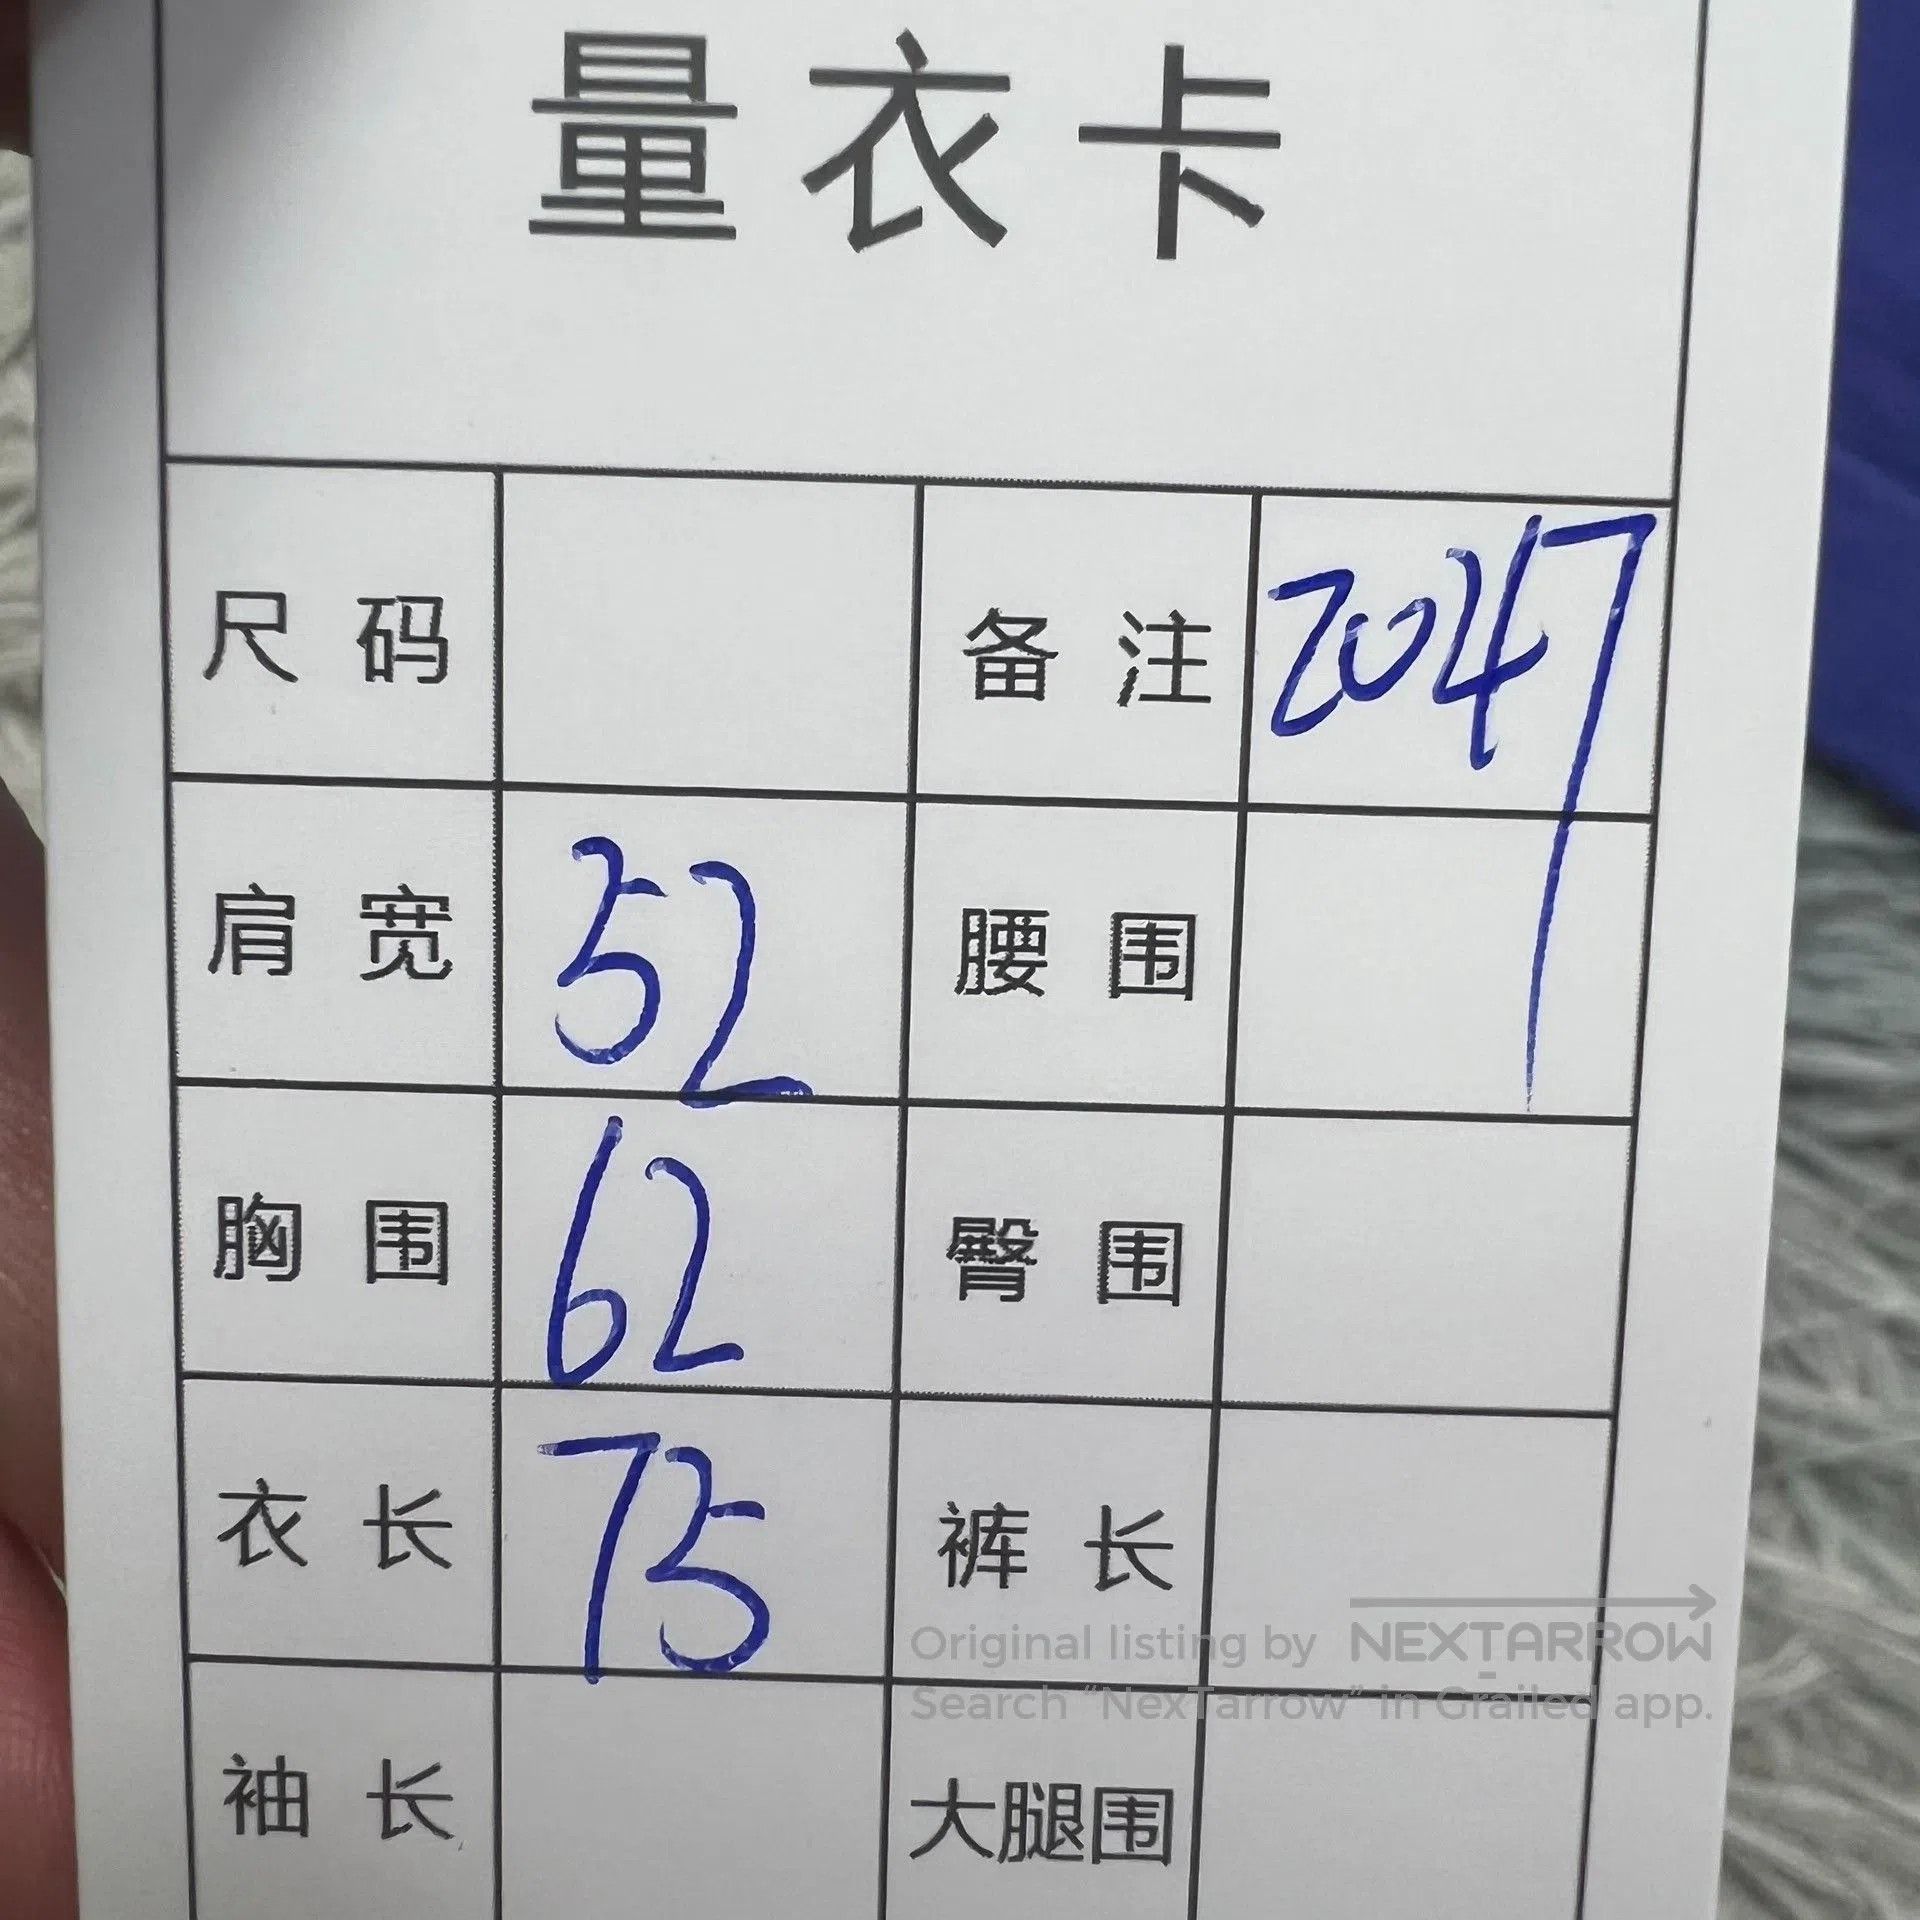 量衣卡
尺码 备注 2047
肩宽 52 腰围
胸围 62 臀围
衣长 75 裤长
Original listing by NEXTARROW
Search “NexTarrow” in Grailed app.
袖长 大腿围